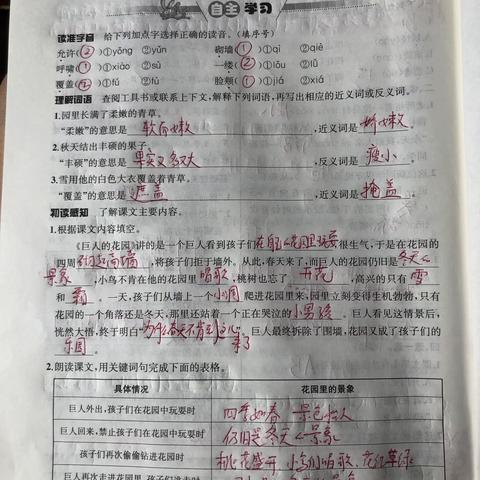 自主 学习
读准字音 给下列加点字选择正确的读音。(填序号)
允许(②)①yǒng ②yǔn 砌墙(①)①qì ②qiè
呼啸(①)①xiào ②sù 一缕(②)①lóu ②lǚ
覆盖()①fú ②fù 脸颊(①)①jiá ②xiá
理解词语 查阅工具书或联系上下文,解释下列词语,再写出相应的近义词或反义词。
1.园里长满了柔嫩的青草。
“柔嫩”的意思是 软而嫩 ,近义词是 娇嫩 。
2.秋天结出丰硕的果子。
“丰硕”的意思是 果实又多又大 ,反义词是 瘦小 。
3.雪用他的白色大衣覆盖着青草。
“覆盖”的意思是 遮盖 ,近义词是 掩盖 。
初读感知 了解课文主要内容。
1.根据课文内容填空。
《巨人的花园》讲的是一个巨人看到孩子们在自己花园里玩耍很生气,于是在花园的
四周砌起高墙,将孩子们拒于墙外。从此,春天来了,而巨人的花园仍旧是冬天的
景象,小鸟不肯在他的花园里唱歌,桃树也忘了开花,高兴的只有雪
和霜。一天,孩子们从墙上一个小洞爬进花园里来,园里立刻变得生机勃勃,只有
花园的一个角落还是冬天,那里还站着一个正在哭泣的小男孩。巨人看见这情景后,
恍然大悟,终于明白为什么春天不肯到这儿来了。巨人最终拆除了围墙,花园又成了孩子们的
乐园。
2.朗读课文,用关键词句完成下面的表格。
具体情况 花园里的景象
巨人外出,孩子们在花园中玩耍时 四季如春 景色怡人
巨人回来,禁止孩子们在花园中玩耍时 仍旧是冬天的景象
孩子们再次偷偷钻进花园时 桃花盛开,小鸟们唱歌,花红草绿
巨人再次走进花园,孩子们逃走时